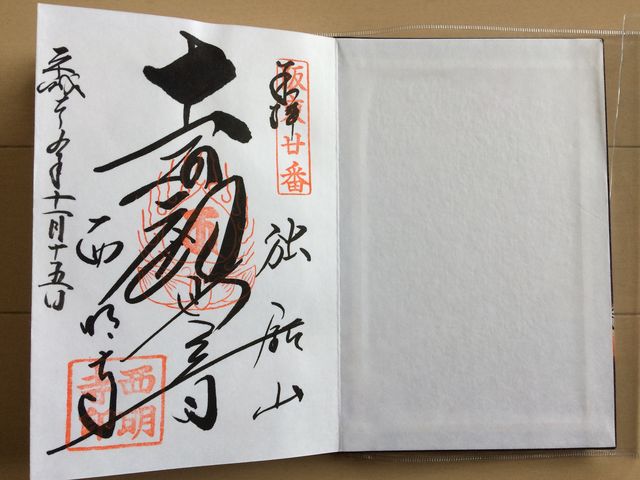 奉拝
坂東廿番
独鈷山
十一面観世音
西明寺
西明寺印
平成二九年十一月十五日